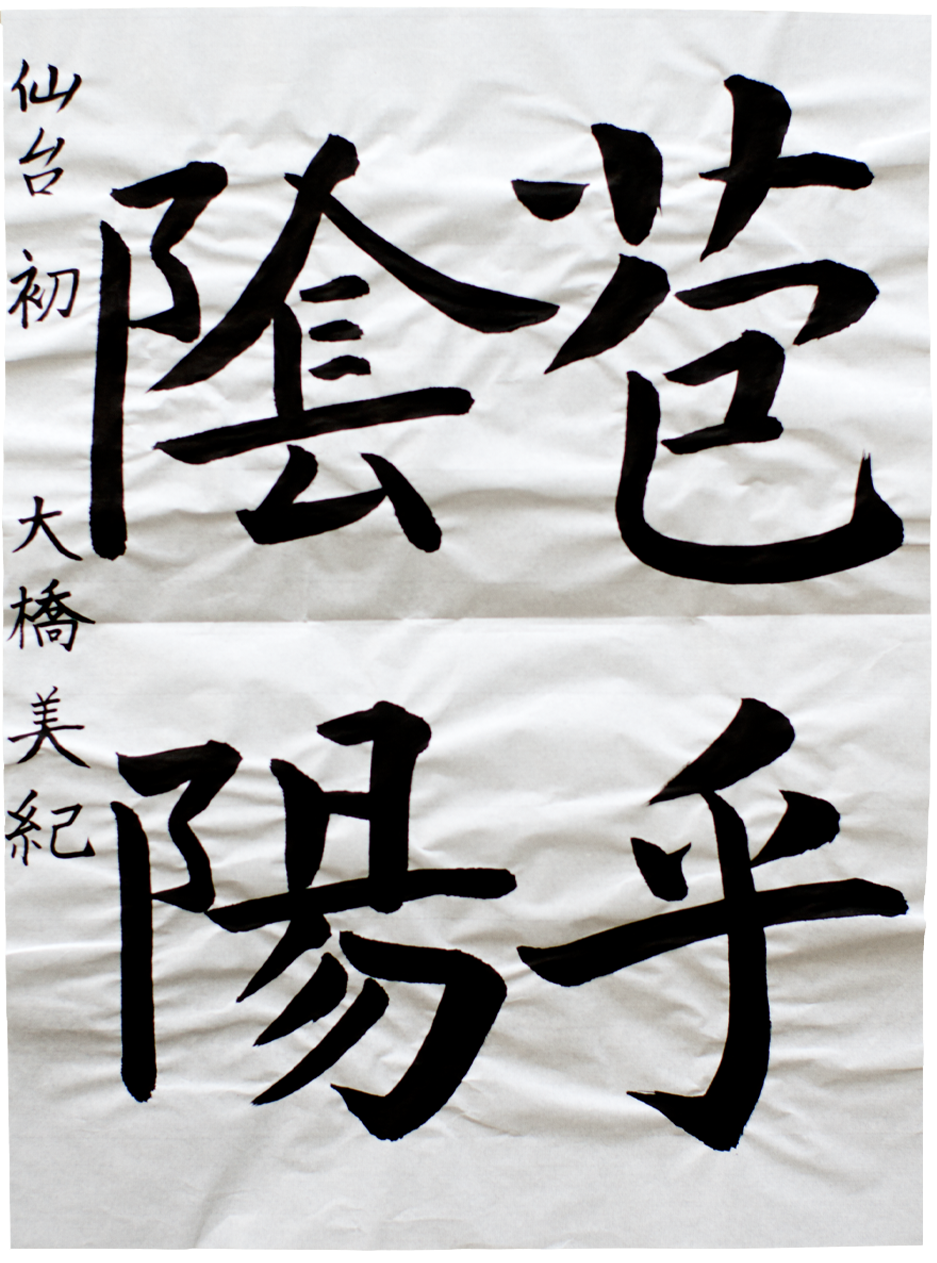 苞乎
陰陽
仙台 初 大橋美紀